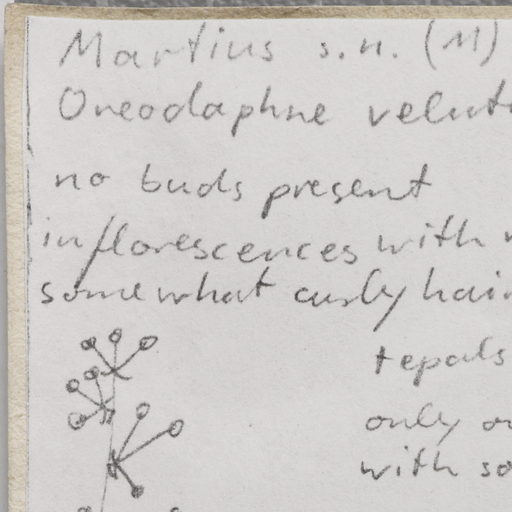 Martius s.n. (M)
Oreodaphne
no buds present
inflorescences with
somewhat curly
tepals
only
with